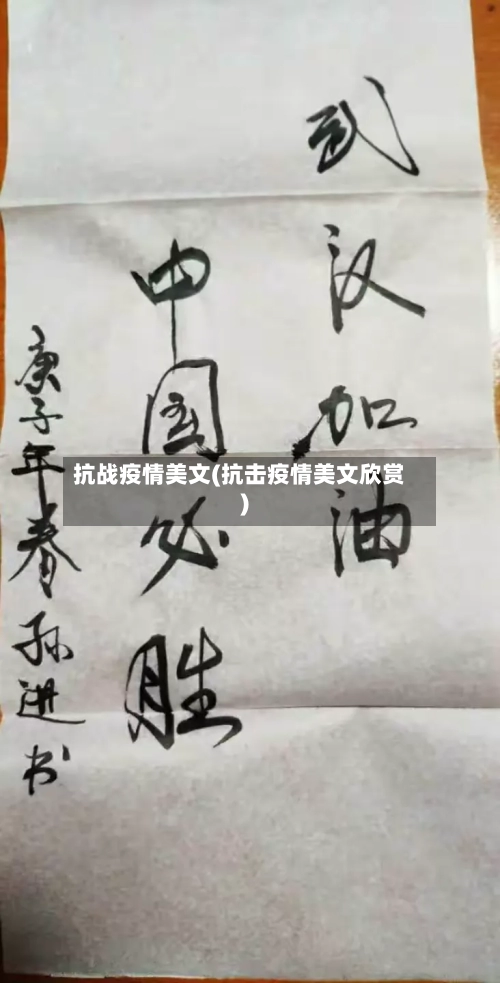 武汉加油
中国必胜
庚子年春孙进书
抗战疫情美文(抗击疫情美文欣赏
)